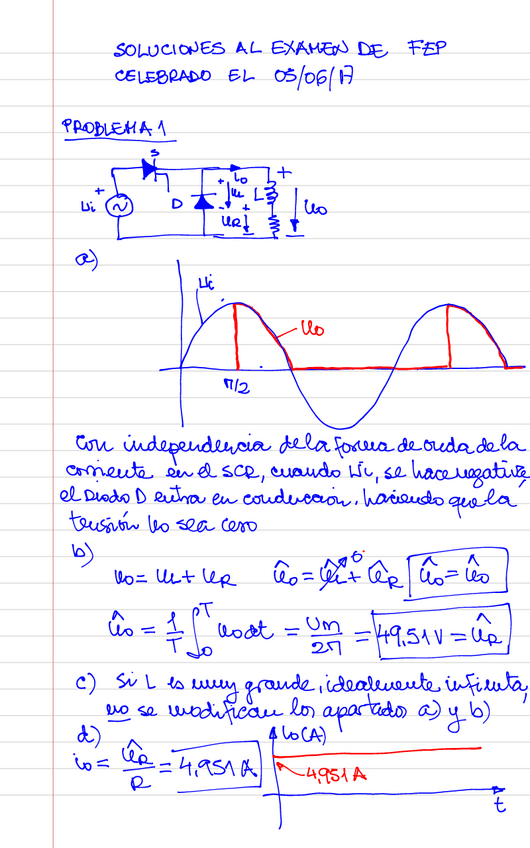 SOLUCIONES AL EXAMEN DE FEP
CELEBRADO EL 05/06/17
PROBLEMA 1
S
+ ui D + uL - + uR - io L + uo
a)
ui
uo
π/2
Con independencia de la forma de onda de la
corriente en el SCR, cuando ui, se hace negativa,
el Diodo D entra en conducción, haciendo que la
tensión uo sea cero
b)
uo = uL + uR ûo = ûL↗0 + ûR ûo = ûo
ûo = 1/T ∫0^T uo dt = Um/2π = 49,51 V = ûR
c) Si L es muy grande, idealmente infinita,
no se modifican los apartados a) y b)
d)
io = ûR/R = 4,951 A
io(A)
4,951 A
t